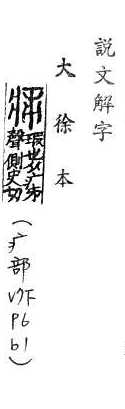 說文解字
大徐本
瑕也从疒𠂔
聲側史切
(疒部 V7下 P6 b1)